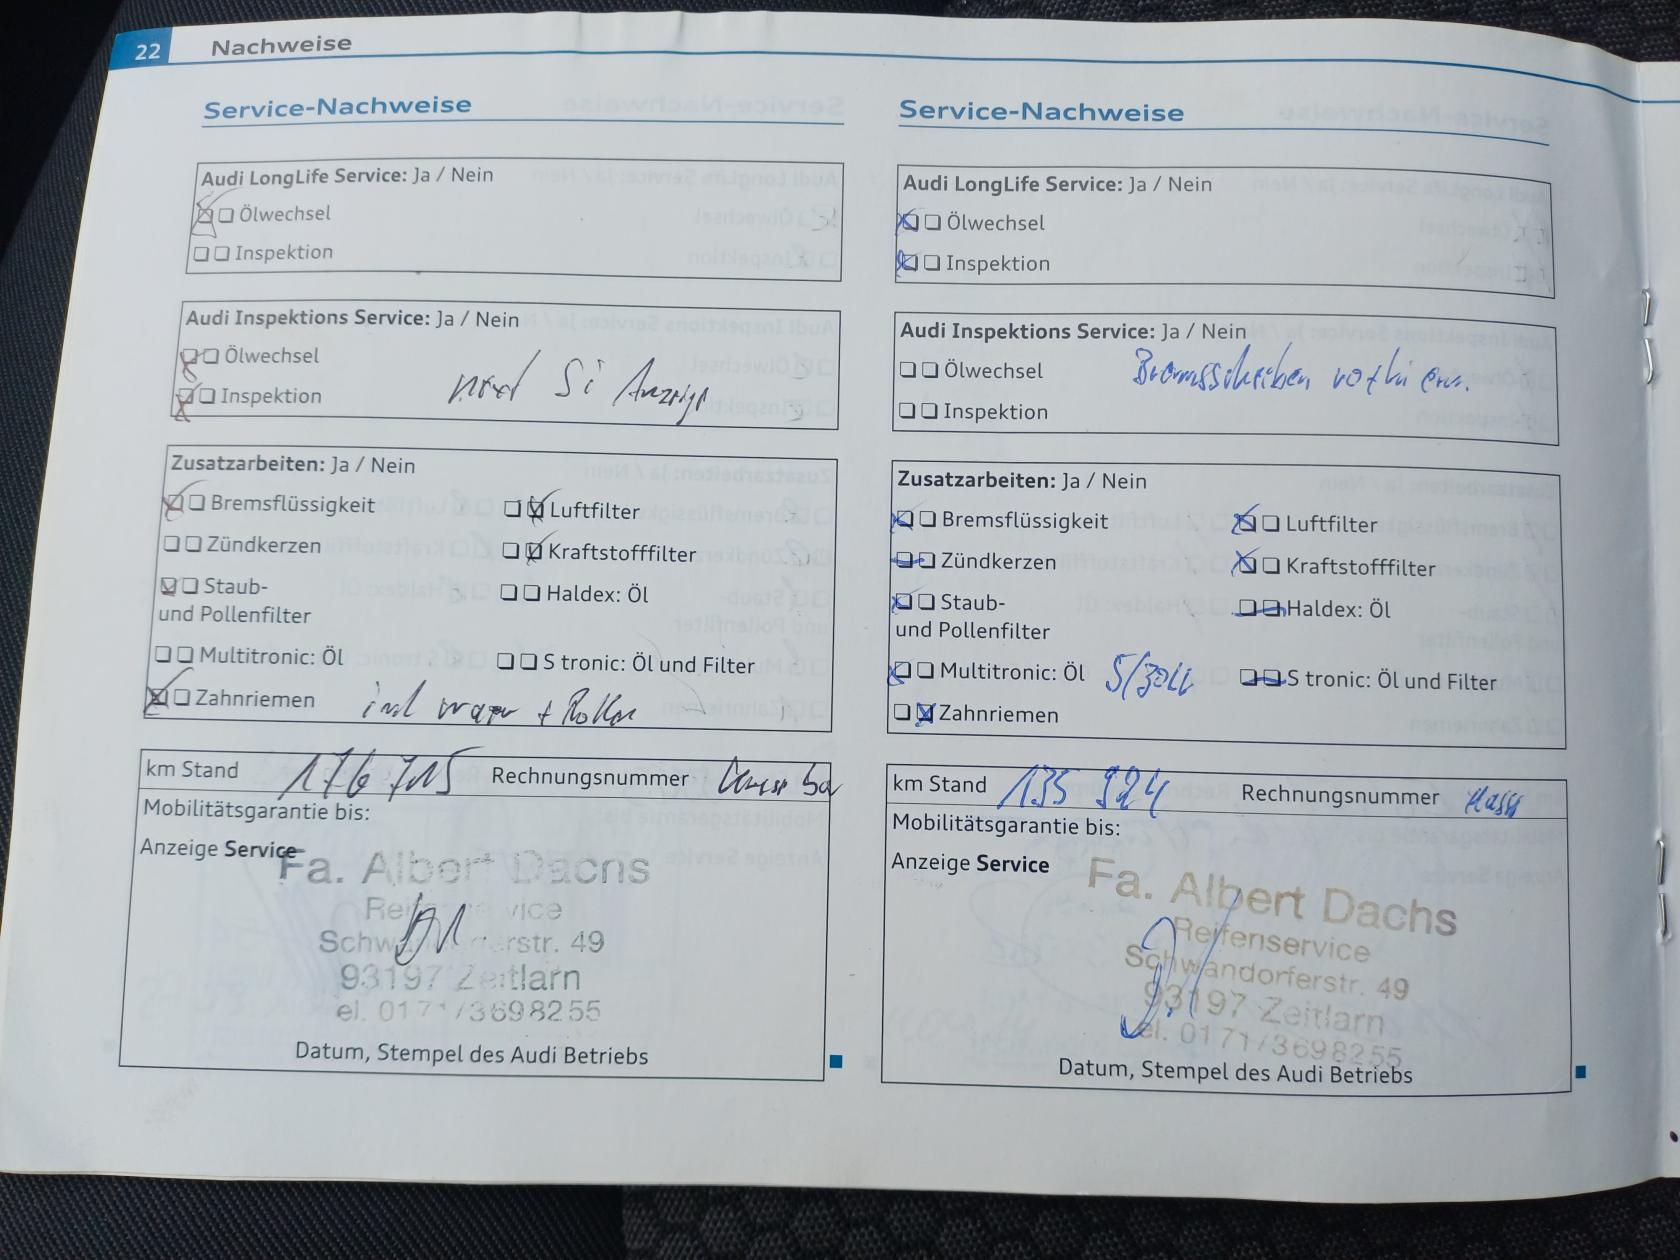 22 Nachweise
Service-Nachweise
Audi LongLife Service: Ja / Nein
Ölwechsel
Inspektion
Audi Inspektions Service: Ja / Nein
Ölwechsel
Inspektion
Si Anzeige
Zusatzarbeiten: Ja / Nein
Bremsflüssigkeit
Luftfilter
Zündkerzen
Kraftstofffilter
Staub-
und Pollenfilter
Haldex: Öl
Multitronic: Öl
S tronic: Öl und Filter
Zahnriemen
+ Rollen
km Stand
Rechnungsnummer
Mobilitätsgarantie bis:
Anzeige Service
Fa. Albert Dachs
49
93197 Zeitlarn
el. 0171/3698255
Datum, Stempel des Audi Betriebs
Service-Nachweise
Audi LongLife Service: Ja / Nein
Ölwechsel
Inspektion
Audi Inspektions Service: Ja / Nein
Ölwechsel
Bremsscheiben
Inspektion
Zusatzarbeiten: Ja / Nein
Bremsflüssigkeit
Luftfilter
Zündkerzen
Kraftstofffilter
Staub-
und Pollenfilter
Haldex: Öl
Multitronic: Öl
S tronic: Öl und Filter
Zahnriemen
km Stand 135 924 Rechnungsnummer
Mobilitätsgarantie bis:
Anzeige Service
Fa. Albert Dachs
Reifenservice
Schwandorferstr. 49
93197 Zeitlarn
el. 0171/3698255
Datum, Stempel des Audi Betriebs